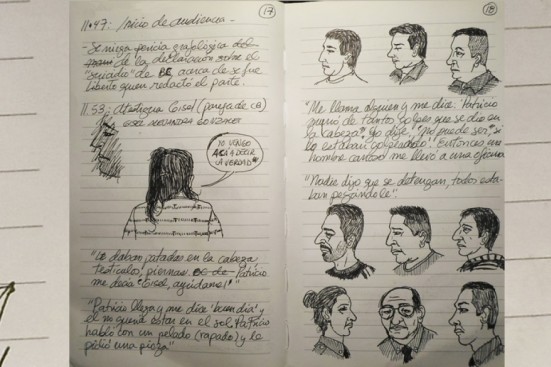 17
11:47: Inicio de audiencia -
- Se niega pericia grafológica del
de la declaración sobre el
"suicidio" de BE acerca de si fue
Liberto quien redactó el parte.
11.53: Atestigua Gisel (pareja de CB)
YO VENGO
ACÁ A DECIR
LA VERDAD
"Le daban patadas en la cabeza
testículos, piernas. Patricio
me decía 'Gisel, ayudame!'"
"Patricio llega y me dice 'buen día' y
él no quería estar en el sol. Patricio
habló con un pelado (rapado) y le
pidió una pieza"
18
"Me llama alguien y me dice: Patricio
murió de tantos golpes que se dio en
la cabeza". Yo dije, "no puede ser, si
lo estaban golpeando". Entonces un
hombre canoso me llevó a una oficina
"Nadie dijo que se detengan, todos esta-
ban pegándole".